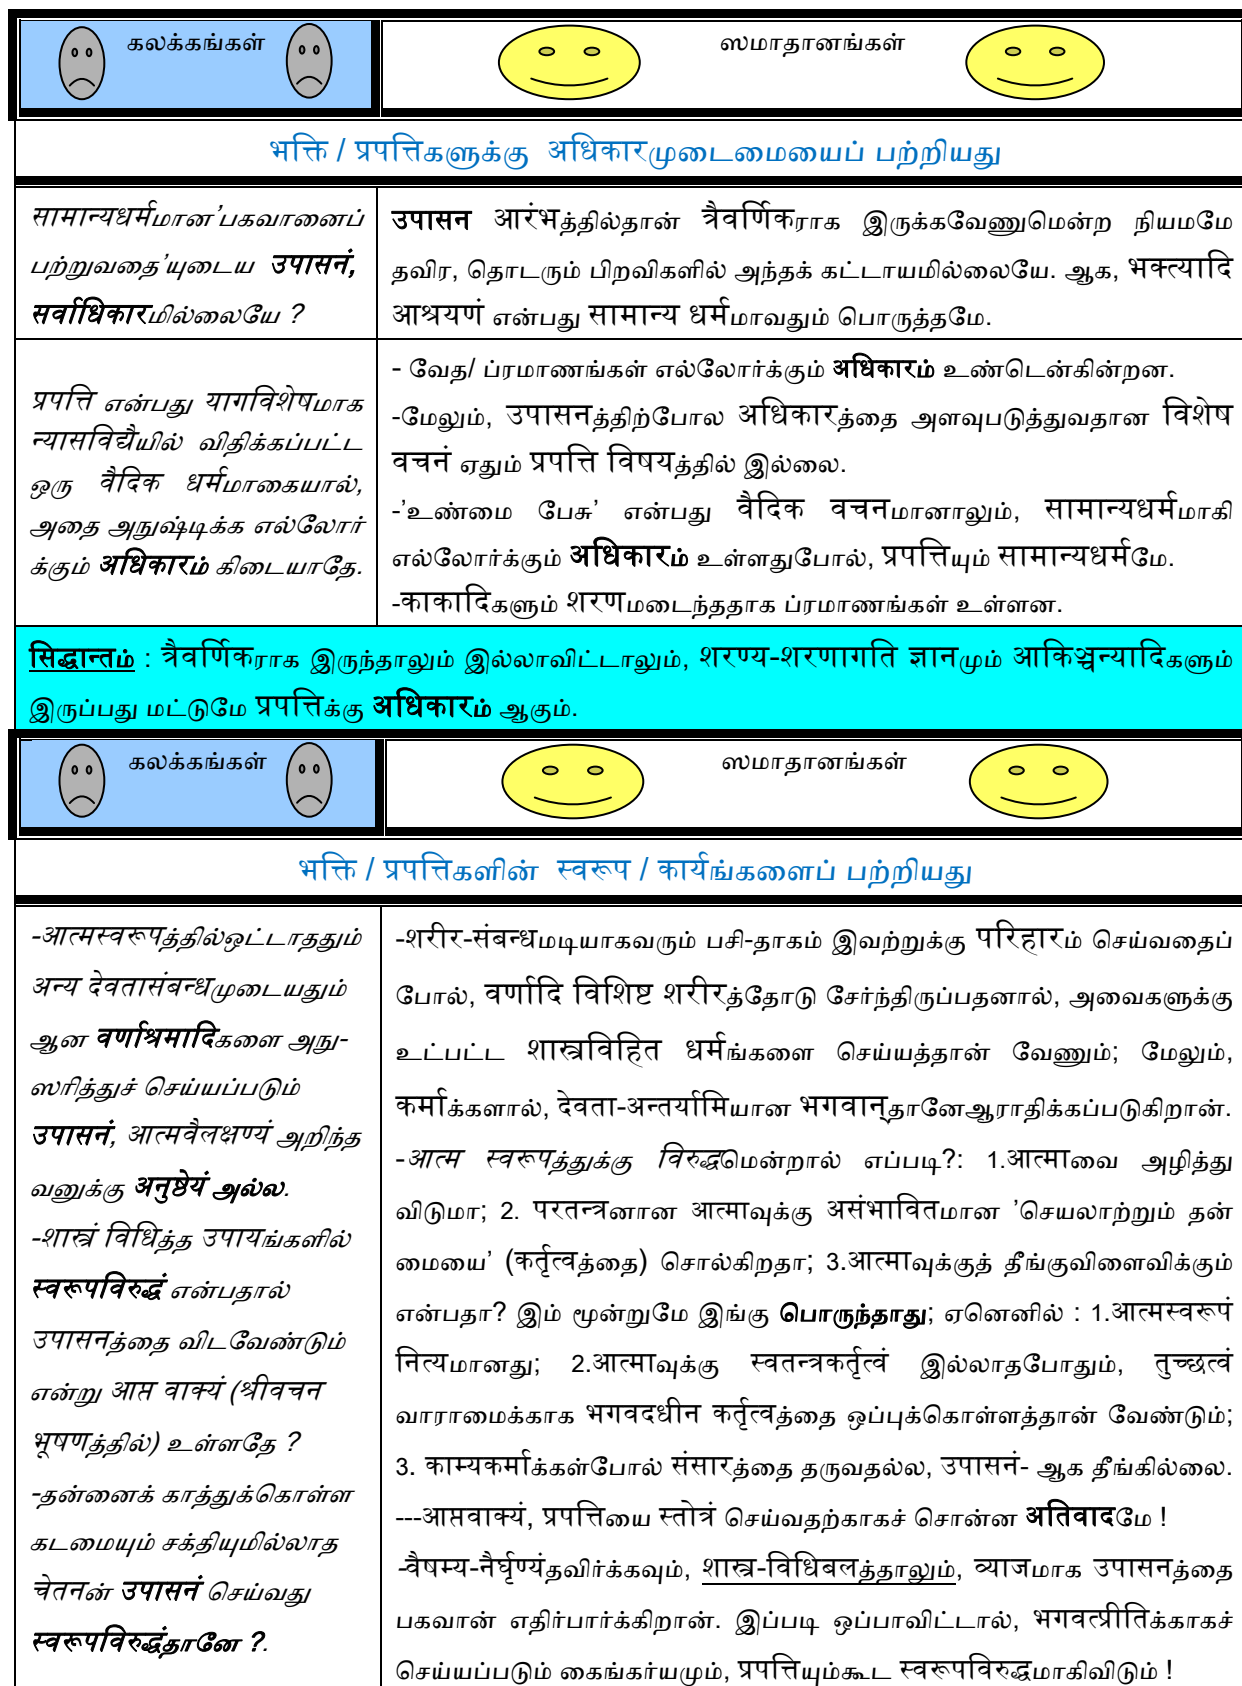 கலக்கங்கள் ஸமாதானங்கள்
भक्ति / प्रपत्तिகளுக்கு अधिकारமுடைமையைப் பற்றியது
सामान्यधर्मமான'பகவானைப்
பற்றுவதை'யுடைய उपासनं,
सर्वाधिकारமில்லையே ?
उपासन आरंभத்தில்தான் त्रैवर्णिकராக இருக்கவேணுமென்ற நியமமே
தவிர, தொடரும் பிறவிகளில் அந்தக் கட்டாயமில்லையே. ஆக, भक्त्यादि
आश्रयणं என்பது सामान्य धर्मமாவதும் பொருத்தமே.
प्रपत्ति என்பது यागविशेषமாக
न्यासविद्यैயில் விதிக்கப்பட்ட
ஒரு वैदिक धर्मமாகையால்,
அதை அநுஷ்டிக்க எல்லோர்
க்கும் अधिकारம் கிடையாதே.
- வேத/ ப்ரமாணங்கள் எல்லோர்க்கும் अधिकारம் உண்டென்கின்றன.
-மேலும், उपासनத்திற்போல अधिकारத்தை அளவுபடுத்துவதான विशेष
वचनं ஏதும் प्रपत्ति विषयத்தில் இல்லை.
-'உண்மை பேசு' என்பது वैदिक वचनமானாலும், सामान्यधर्मமாகி
எல்லோர்க்கும் अधिकारம் உள்ளதுபோல், प्रपत्तिயும் सामान्यधर्मமே.
-काकादिகளும் शरणமடைந்ததாக ப்ரமாணங்கள் உள்ளன.
सिद्धान्तம் : त्रैवर्णिकராக இருந்தாலும் இல்லாவிட்டாலும், शरण्य-शरणागति ज्ञानமும் आकिञ्चन्यादिகளும்
இருப்பது மட்டுமே प्रपत्तिக்கு अधिकारம் ஆகும்.
கலக்கங்கள் ஸமாதானங்கள்
भक्ति / प्रपत्तिகளின் स्वरूप / कार्यங்களைப் பற்றியது
-आत्मस्वरूपத்தில்ஒட்டாததும்
अन्य देवतासंबन्धமுடையதும்
ஆன वर्णाश्रमादिகளை அநு-
ஸரித்துச் செய்யப்படும்
उपासनं, आत्मवैलक्षण्यं அறிந்த
வனுக்கு अनुष्ठेयं அல்ல.
-शास्त्रं विधिத்த उपायங்களில்
स्वरूपविरुद्धं என்பதால்
उपासनத்தை விடவேண்டும்
என்று आप्त वाक्यं (श्रीवचन
भूषणத்தில்) உள்ளதே ?
-தன்னைக் காத்துக்கொள்ள
கடமையும் சக்தியுமில்லாத
चेतनன் उपासनं செய்வது
स्वरूपविरुद्धंதானே ?.
-शरीर-संबन्धமடியாகவரும் பசி-தாகம் இவற்றுக்கு परिहारம் செய்வதைப்
போல், वर्णादि विशिष्ट शरीरத்தோடு சேர்ந்திருப்பதனால், அவைகளுக்கு
உட்பட்ட शास्त्रविहित धर्मங்களை செய்யத்தான் வேணும்; மேலும்,
कर्माக்களால், देवता-अन्तर्यामिயான भगवान्தானேஆராதிக்கப்படுகிறான்.
-आत्म स्वरूपத்துக்கு विरुद्धமென்றால் எப்படி?: 1.आत्माவை அழித்து
விடுமா; 2. परतन्त्रனான आत्माவுக்கு असंभावितமான 'செயலாற்றும் தன்
மையை' (कर्तृत्वத்தை) சொல்கிறதா; 3.आत्माவுக்குத் தீங்குவிளைவிக்கும்
என்பதா? இம் மூன்றுமே இங்கு பொருந்தாது; ஏனெனில் : 1.आत्मस्वरूपं
नित्यமானது; 2.आत्माவுக்கு स्वतन्त्रकर्तृत्वं இல்லாதபோதும், तुच्छत्वं
வாராமைக்காக भगवदधीन कर्तृत्वத்தை ஒப்புக்கொள்ளத்தான் வேண்டும்;
3. काम्यकर्माக்கள்போல் संसारத்தை தருவதல்ல, उपासनं- ஆக தீங்கில்லை.
---आप्तवाक्यं, प्रपत्तिயை स्तोत्रं செய்வதற்காகச் சொன்ன अतिवादமே !
-वैषम्य-नैर्घृण्यंதவிர்க்கவும், शास्त्र-विधिबलத்தாலும், व्याजமாக उपासनத்தை
பகவான் எதிர்பார்க்கிறான். இப்படி ஒப்பாவிட்டால், भगवत्प्रीतिக்காகச்
செய்யப்படும் கைங்கர்யமும், प्रपत्तिயும்கூட स्वरूपविरुद्धமாகிவிடும் !